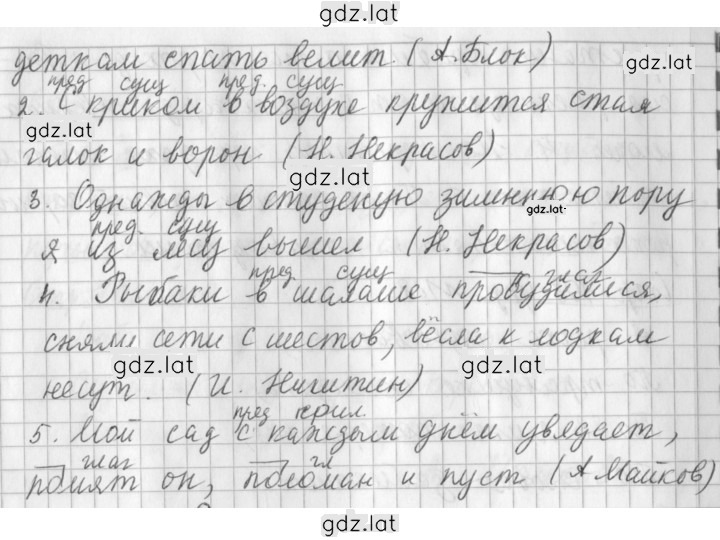 gdz.lat
деткам спать велит. (А. Блок)
gdz.lat
пред сущ пред. сущ
2. С криком в воздухе кружится стая
gdz.lat
галок и ворон (Н. Некрасов)
gdz.lat
3. Однажды в студеную зимнюю пору
gdz.lat
пред. сущ
я из лесу вышел (Н. Некрасов)
пред. сущ глаг
4. Рыбаки в шалаше пробудилися,
сняли сети с шестов, вёсла к лодкам
gdz.lat gdz.lat
несут. (И. Никитин)
пред прил
5. Мой сад с каждым днём увядает,
глаг гл
помят он, поломан и пуст (А Майков)
gdz.lat